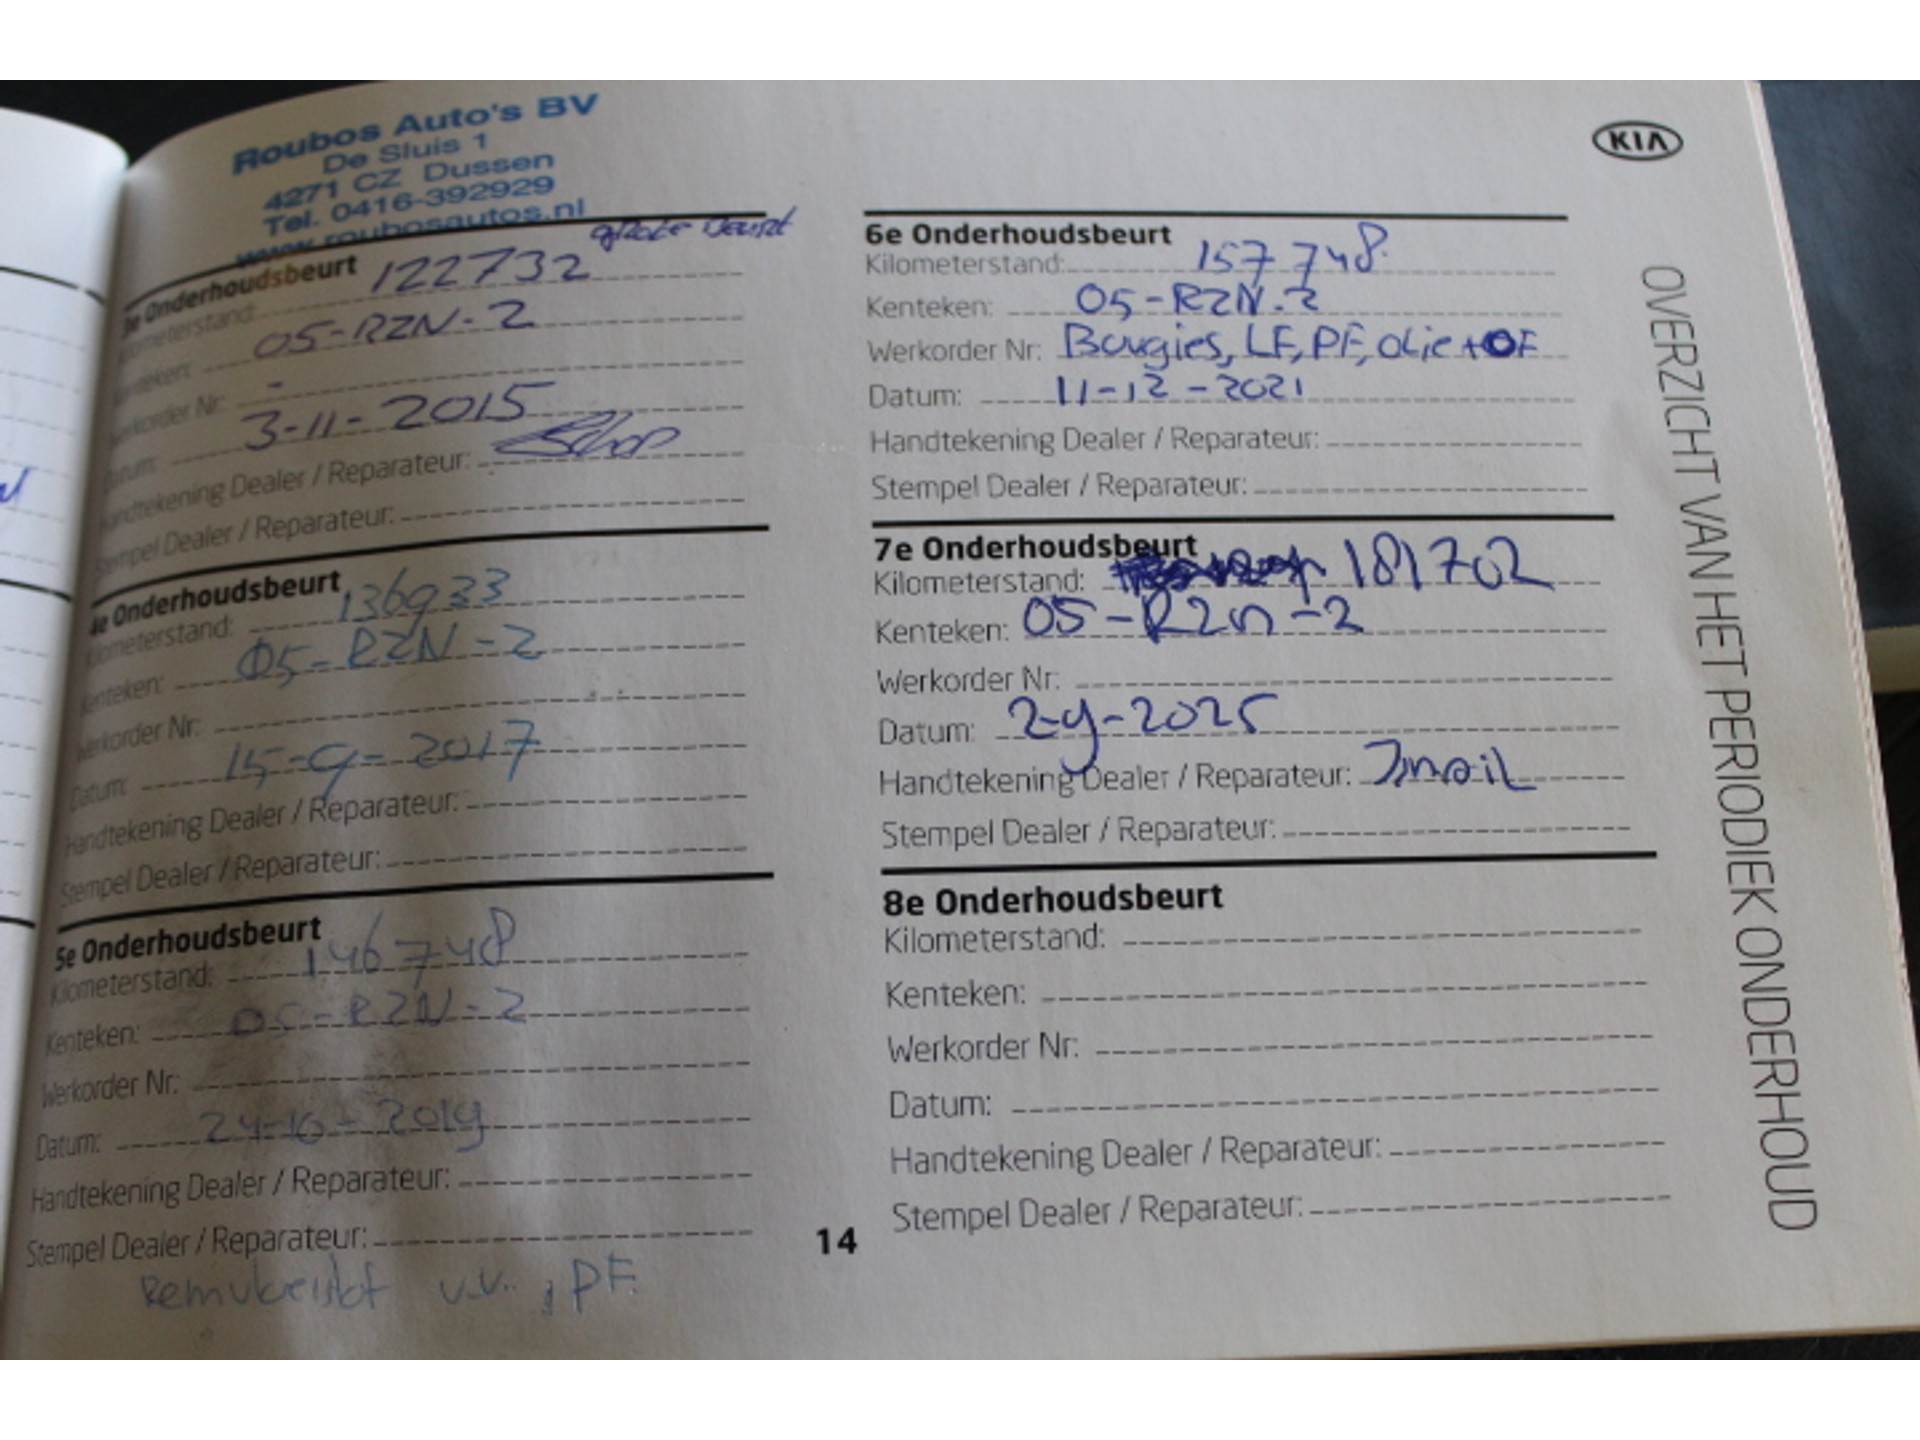 Roubos Auto's BV
De Sluis 1
4271 CZ Dussen
Tel. 0416-392929
www.roubosautos.nl
grote beurt
3e Onderhoudsbeurt
Kilometerstand: 122732
Kenteken: 05-RZN-2
Werkorder Nr: -
Datum: 3-11-2015
Handtekening Dealer / Reparateur:
Stempel Dealer / Reparateur:
4e Onderhoudsbeurt
Kilometerstand: 136933
Kenteken: 05-RZN-2
Werkorder Nr:
Datum: 15-9-2017
Handtekening Dealer / Reparateur:
Stempel Dealer / Reparateur:
5e Onderhoudsbeurt
Kilometerstand: 146748
Kenteken: 05-RZN-2
Werkorder Nr:
Datum: 24-10-2019
Handtekening Dealer / Reparateur:
Stempel Dealer / Reparateur:
v.v., PF.
14
KIA
6e Onderhoudsbeurt
Kilometerstand: 157748
Kenteken: 05-RZN-2
Werkorder Nr: Bougies, LF, PF, olie + OF
Datum: 11-12-2021
Handtekening Dealer / Reparateur:
Stempel Dealer / Reparateur:
7e Onderhoudsbeurt
Kilometerstand: 181702
Kenteken: 05-RZn-2
Werkorder Nr:
Datum: 2-9-2025
Handtekening Dealer / Reparateur:
Stempel Dealer / Reparateur:
8e Onderhoudsbeurt
Kilometerstand:
Kenteken:
Werkorder Nr:
Datum:
Handtekening Dealer / Reparateur:
Stempel Dealer / Reparateur:
OVERZICHT VAN HET PERIODIEK ONDERHOUD